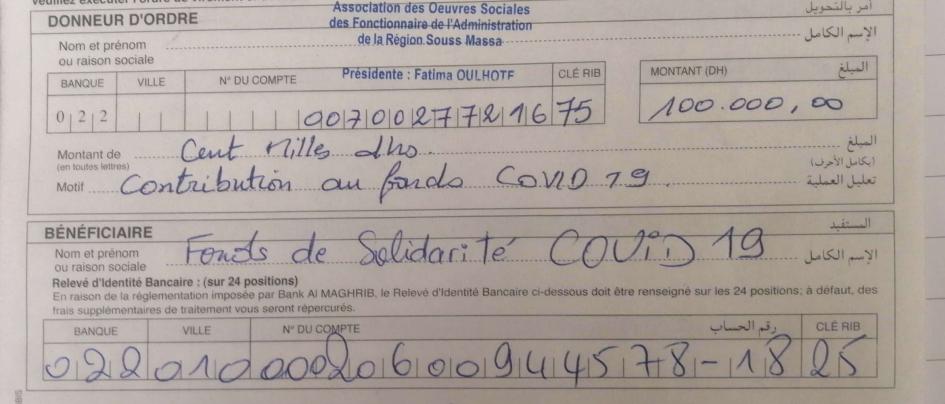 DONNEUR D'ORDRE
Association des Oeuvres Sociales
des Fonctionnaire de l'Administration
de la Région Souss Massa
آمر بالتحويل
Nom et prénom
ou raison sociale
الإسم الكامل
BANQUE VILLE N° DU COMPTE Présidente : Fatima OULHOTF CLÉ RIB MONTANT (DH) المبلغ
022 0070027721675 100.000,00
Montant de
(en toutes lettres)
Cent Milles dhs
المبلغ
(بكامل الأحرف)
Motif Contribution au fonds COVID 19 تعليل العملية
BÉNÉFICIAIRE المستفيد
Nom et prénom
ou raison sociale
Fonds de Solidarité COVID 19
الإسم الكامل
Relevé d'Identité Bancaire : (sur 24 positions)
En raison de la réglementation imposée par Bank Al MAGHRIB, le Relevé d'Identité Bancaire ci-dessous doit être renseigné sur les 24 positions; à défaut, des
frais supplémentaires de traitement vous seront répercutés.
BANQUE VILLE N° DU COMPTE رقم الحساب CLÉ RIB
022010000206009445 78-18 25